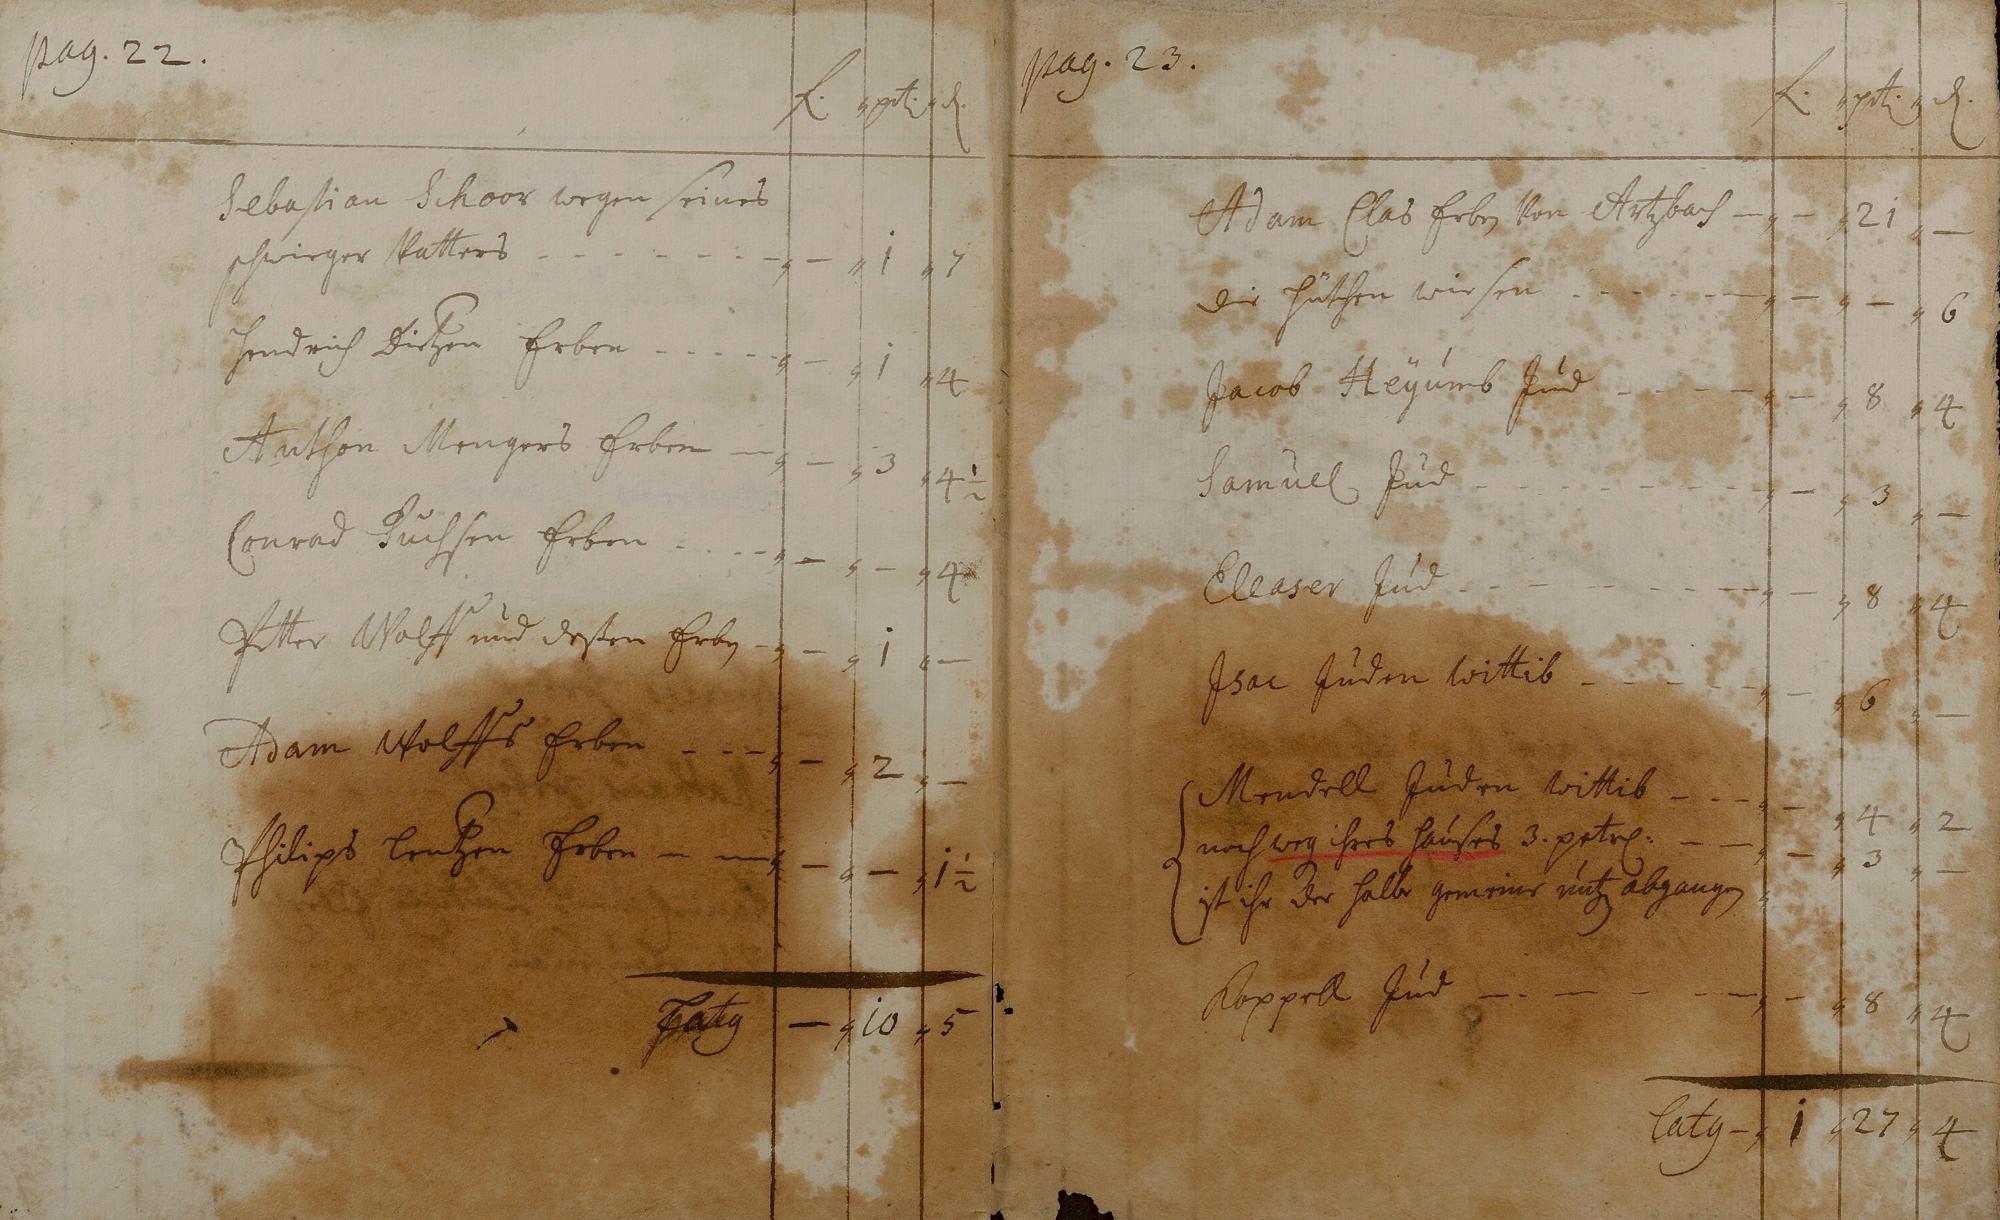 pag. 22.
f. ptr. d.
Sebastian Schoor wegen seines
schwieger Vatters - - - - - - - „ — „ 1 „ 7
Hendrich Dietzen Erben - - - - - „ — „ 1 „ 4
Anthon Mengers Erben — „ — „ 3 „ 4 1/2
Conrad Fuchsen Erben - - - - „ — „ — „ 4
Petter Wolff und dessen Erben - „ — „ 1 „ —
Adam Wolffs Erben - - - „ — „ 2 „ —
Philips Lentzen Erben — — „ — „ — „ 1 1/2
Latg — „ 10 „ 5
pag. 23.
f. ptr. d.
Adam Clas Erben von Artzbach — „ — „ 21 „ —
die hütchen wiesen - - - - - „ — „ — „ 6
Jacob Heyumb Jud - - - - „ — „ 8 „ 4
Samuel Jud - - - - - - - „ — „ 3 „ —
Eleaser Jud - - - - - - - „ — „ 8 „ 4
Isac Juden wittib - - - - - „ — „ 6 „ —
Mendell Juden wittib - - - „ — „ 4 „ 2
noch weg ihres hauses 3. petrl: - - - „ — „ 3 „ —
ist ihr der halbe gemeine nutz abgangen „
Koppell Jud - - - - - „ — „ 8 „ 4
Latg — „ 1 „ 27 „ 4